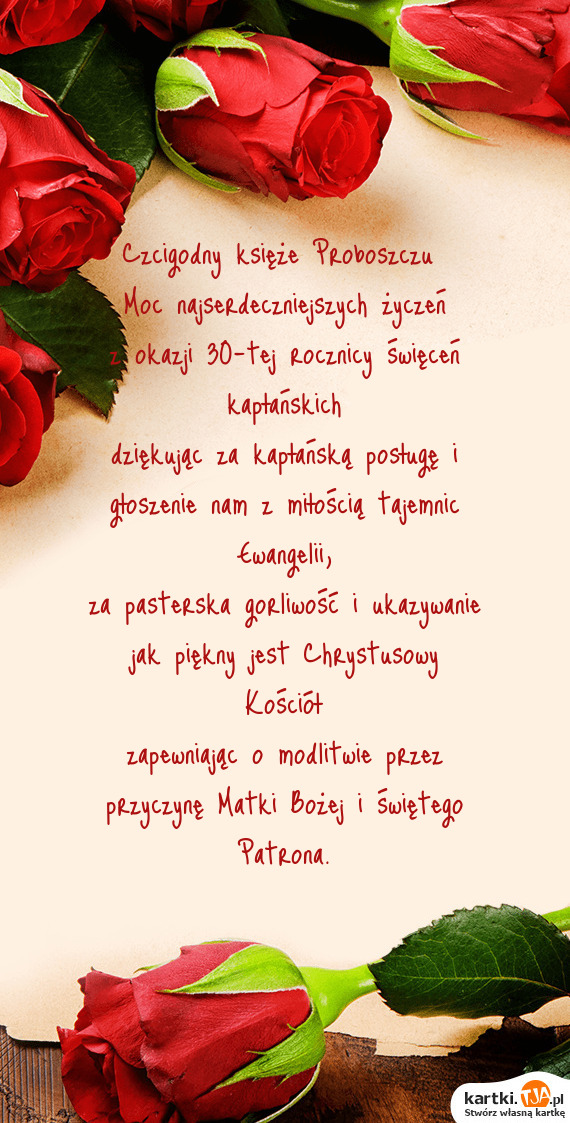 Czcigodny księże Proboszczu
Moc najserdeczniejszych życzeń
z okazji 30-tej rocznicy święceń
kapłańskich
dziękując za kapłańską posługę i
głoszenie nam z miłością tajemnic
Ewangelii,
za pasterska gorliwość i ukazywanie
jak piękny jest Chrystusowy
Kościół
zapewniając o modlitwie przez
przyczynę Matki Bożej i świętego
Patrona.
kartki.TJA.pl
Stwórz własną kartkę